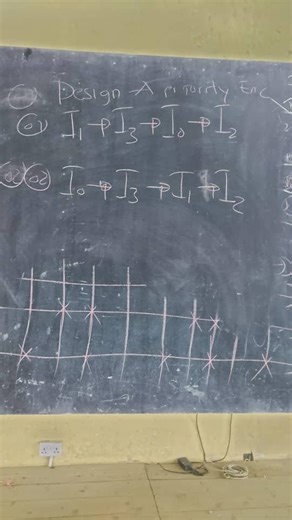 Design A priority Enc
(a) I₁ → I₃ → I₀ → I₂
I₀ → I₃ → I₁ → I₂